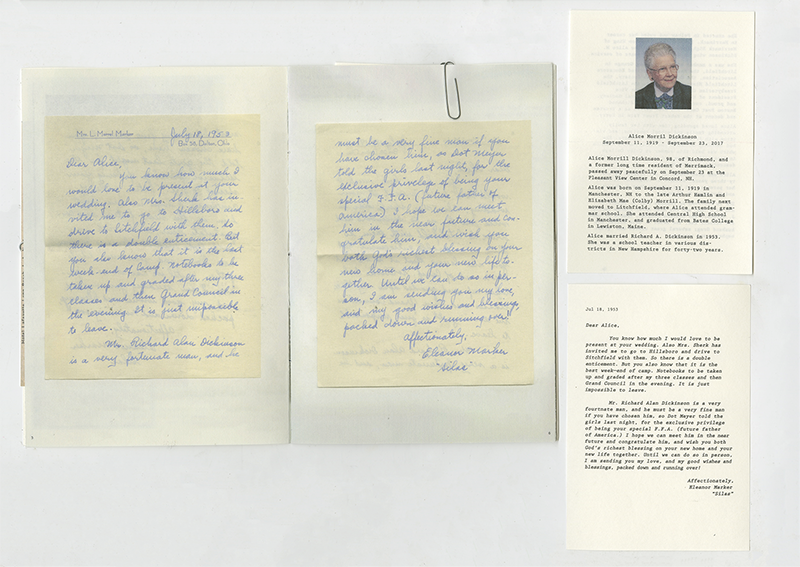 Mrs. L. Morrel Marker
July 18, 1953
Box 59, Dalton, Ohio
Dear Alice,
You know how much I
would love to be present at your
wedding. Also Mrs. Shark has in-
vited me to go to Hillsboro and
drive to Litchfield with them, so
there is a double enticement. But
you also know that it is the last
week-end of Camp. Notebooks to be
taken up and graded after my three
classes and then Grand Council in
the evening. It is just impossible
to leave.
Mr. Richard Alan Dickinson
is a very fortunate man, and he
must be a very fine man if you
have chosen him, so Dot Meyer
told the girls last night, for the
exclusive privilege of being your
special F.F.A. (future father of
America) I hope we can meet
him in the near future and con-
gratulate him, and wish you
both God's richest blessing on your
new home and your new life to-
gether. Until we can do so in per-
son, I am sending you my love,
and my good wishes and blessing,
packed down and running over!
Affectionately,
Eleanor Marker
"Silas"
Alice Morril Dickinson
September 11, 1919 - September 23, 2017
Alice Morrill Dickinson, 98, of Richmond, and
a former long time resident of Merrimack,
passed away peacefully on September 23 at the
Pleasant View Center in Concord, NH.
Alice was born on September 11, 1919 in
Manchester, NH to the late Arthur Hamlin and
Elizabeth Mae (Colby) Morrill. The family next
moved to Litchfield, where Alice attended gram-
mar school. She attended Central High School
in Manchester, and graduated from Bates College
in Lewiston, Maine.
Alice married Richard A. Dickinson in 1953.
She was a school teacher in various dis-
tricts in New Hampshire for forty-two years.
Jul 18, 1953
Dear Alice,
You know how much I would love to be
present at your wedding. Also Mrs. Shark has
invited me to go to Hillsboro and drive to
Pitchfield with them. So there is a double
enticement. But you also know that it is the
best week-end of camp. Notebooks to be taken
up and graded after my three classes and then
Grand Council in the evening. It is just
impossible to leave.
Mr. Richard Alan Dickinson is a very
fourtnate man, and he must be a very fine man
if you have chosen him, so Dot Meyer told the
girls last night, for the exclusive privilege
of being your special F.F.A. (future father
of America.) I hope we can meet him in the near
future and congratulate him, and wish you both
God's richest blessing on your new home and
your new life together. Until we can do so in person,
I am sending you my love, and my good wishes and
blessings, packed down and running over!
Affectionately,
Eleanor Marker
"Silas"